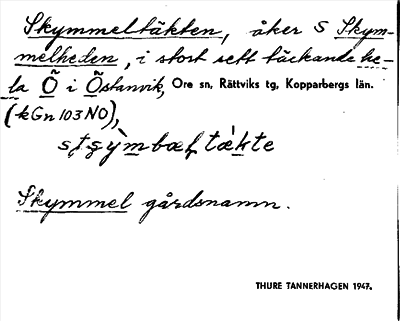 Skymmeltäkten, åker S Skym-
melheden, i stort sett täckande he-
la Õ i Östanvik, Ore sn, Rättviks tg, Kopparbergs län.
(kGn 103 NO),
Skymmel gårdsnamn.
THURE TANNERHAGEN 1947.